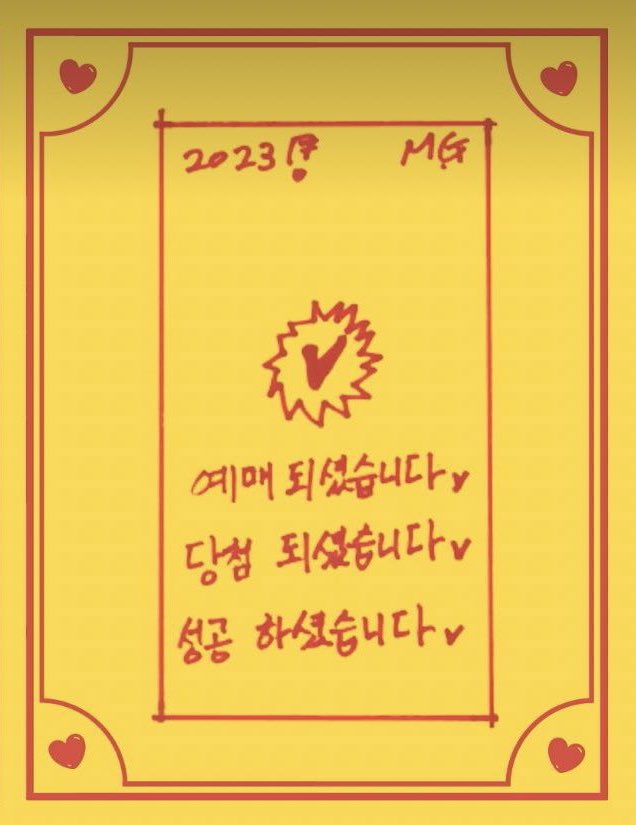 2023 MG
예매 되셨습니다
당첨 되셨습니다
성공 하셨습니다